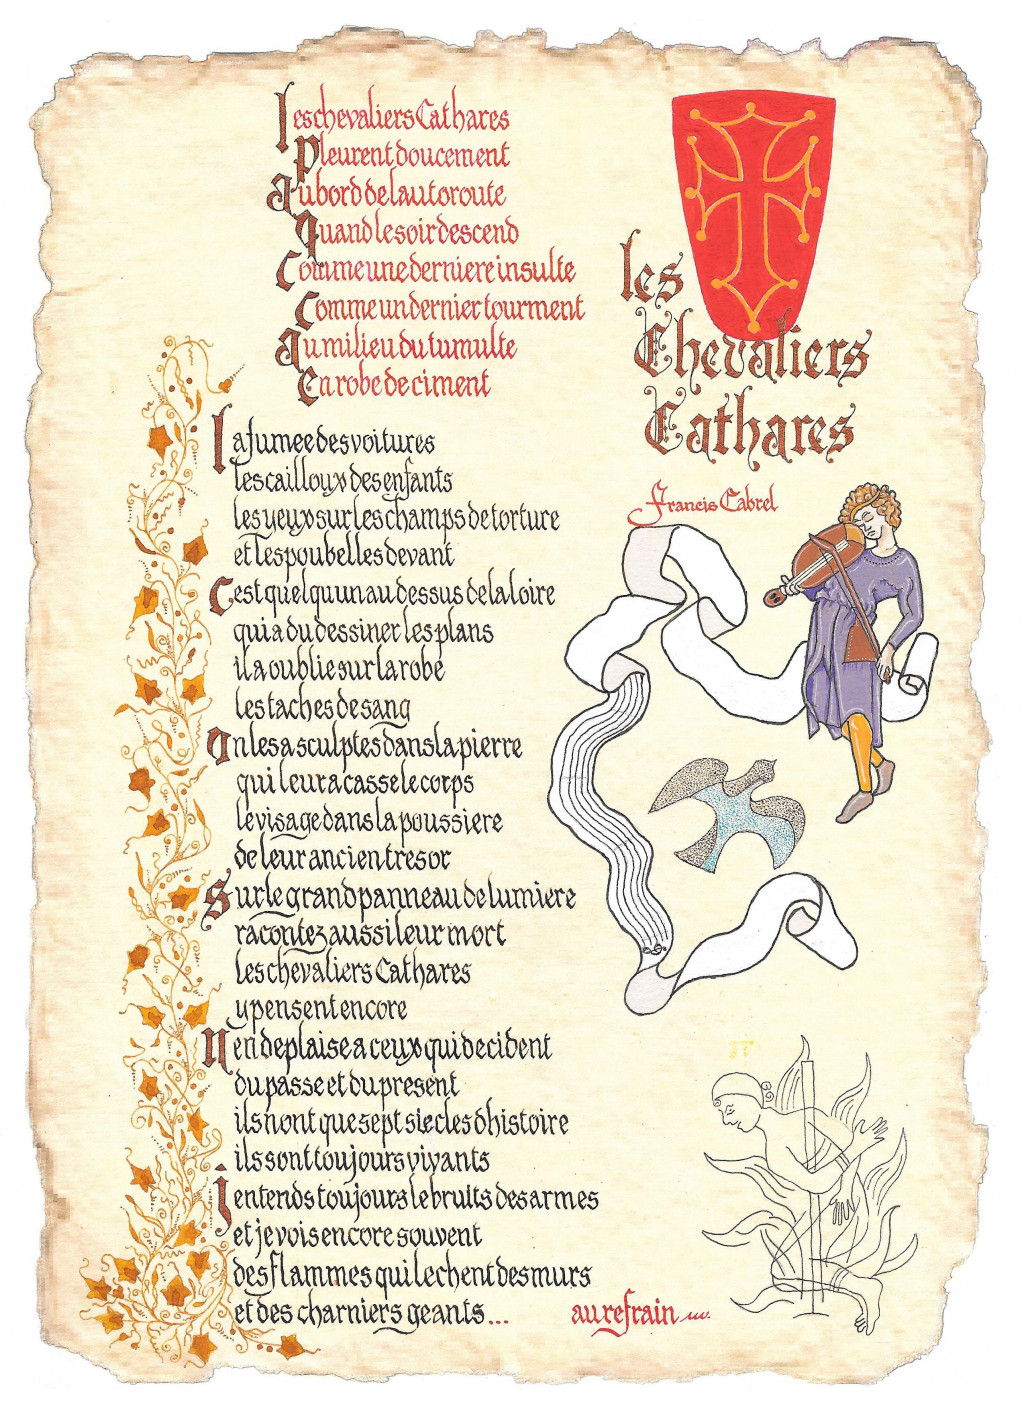 les chevaliers Cathares
Pleurent doucement
au bord de l autoroute
quand le soir descend
Comme une derniere insulte
Comme un dernier tourment
au milieu du tumulte
en robe de ciment
les
Chevaliers
Cathares
Francis Cabrel
la fumee des voitures
les cailloux des enfants
les yeux sur les champs de torture
et les poubelles devant
Cest quelqu un au dessus de la loire
qui a du dessiner les plans
il a oublie sur la robe
les taches de sang
on les a sculptes dans la pierre
qui leur a casse le corps
le visage dans la poussiere
de leur ancien tresor
Sur le grand panneau de lumiere
racontez aussi leur mort
les chevaliers Cathares
y pensent encore
n en deplaise a ceux qui decident
du passe et du present
ils nont que sept siecles d histoire
ils sont toujours vivants
j entends toujours le bruits des armes
et je vois encore souvent
des flammes qui lechent des murs
et des charniers geants...
au refrain